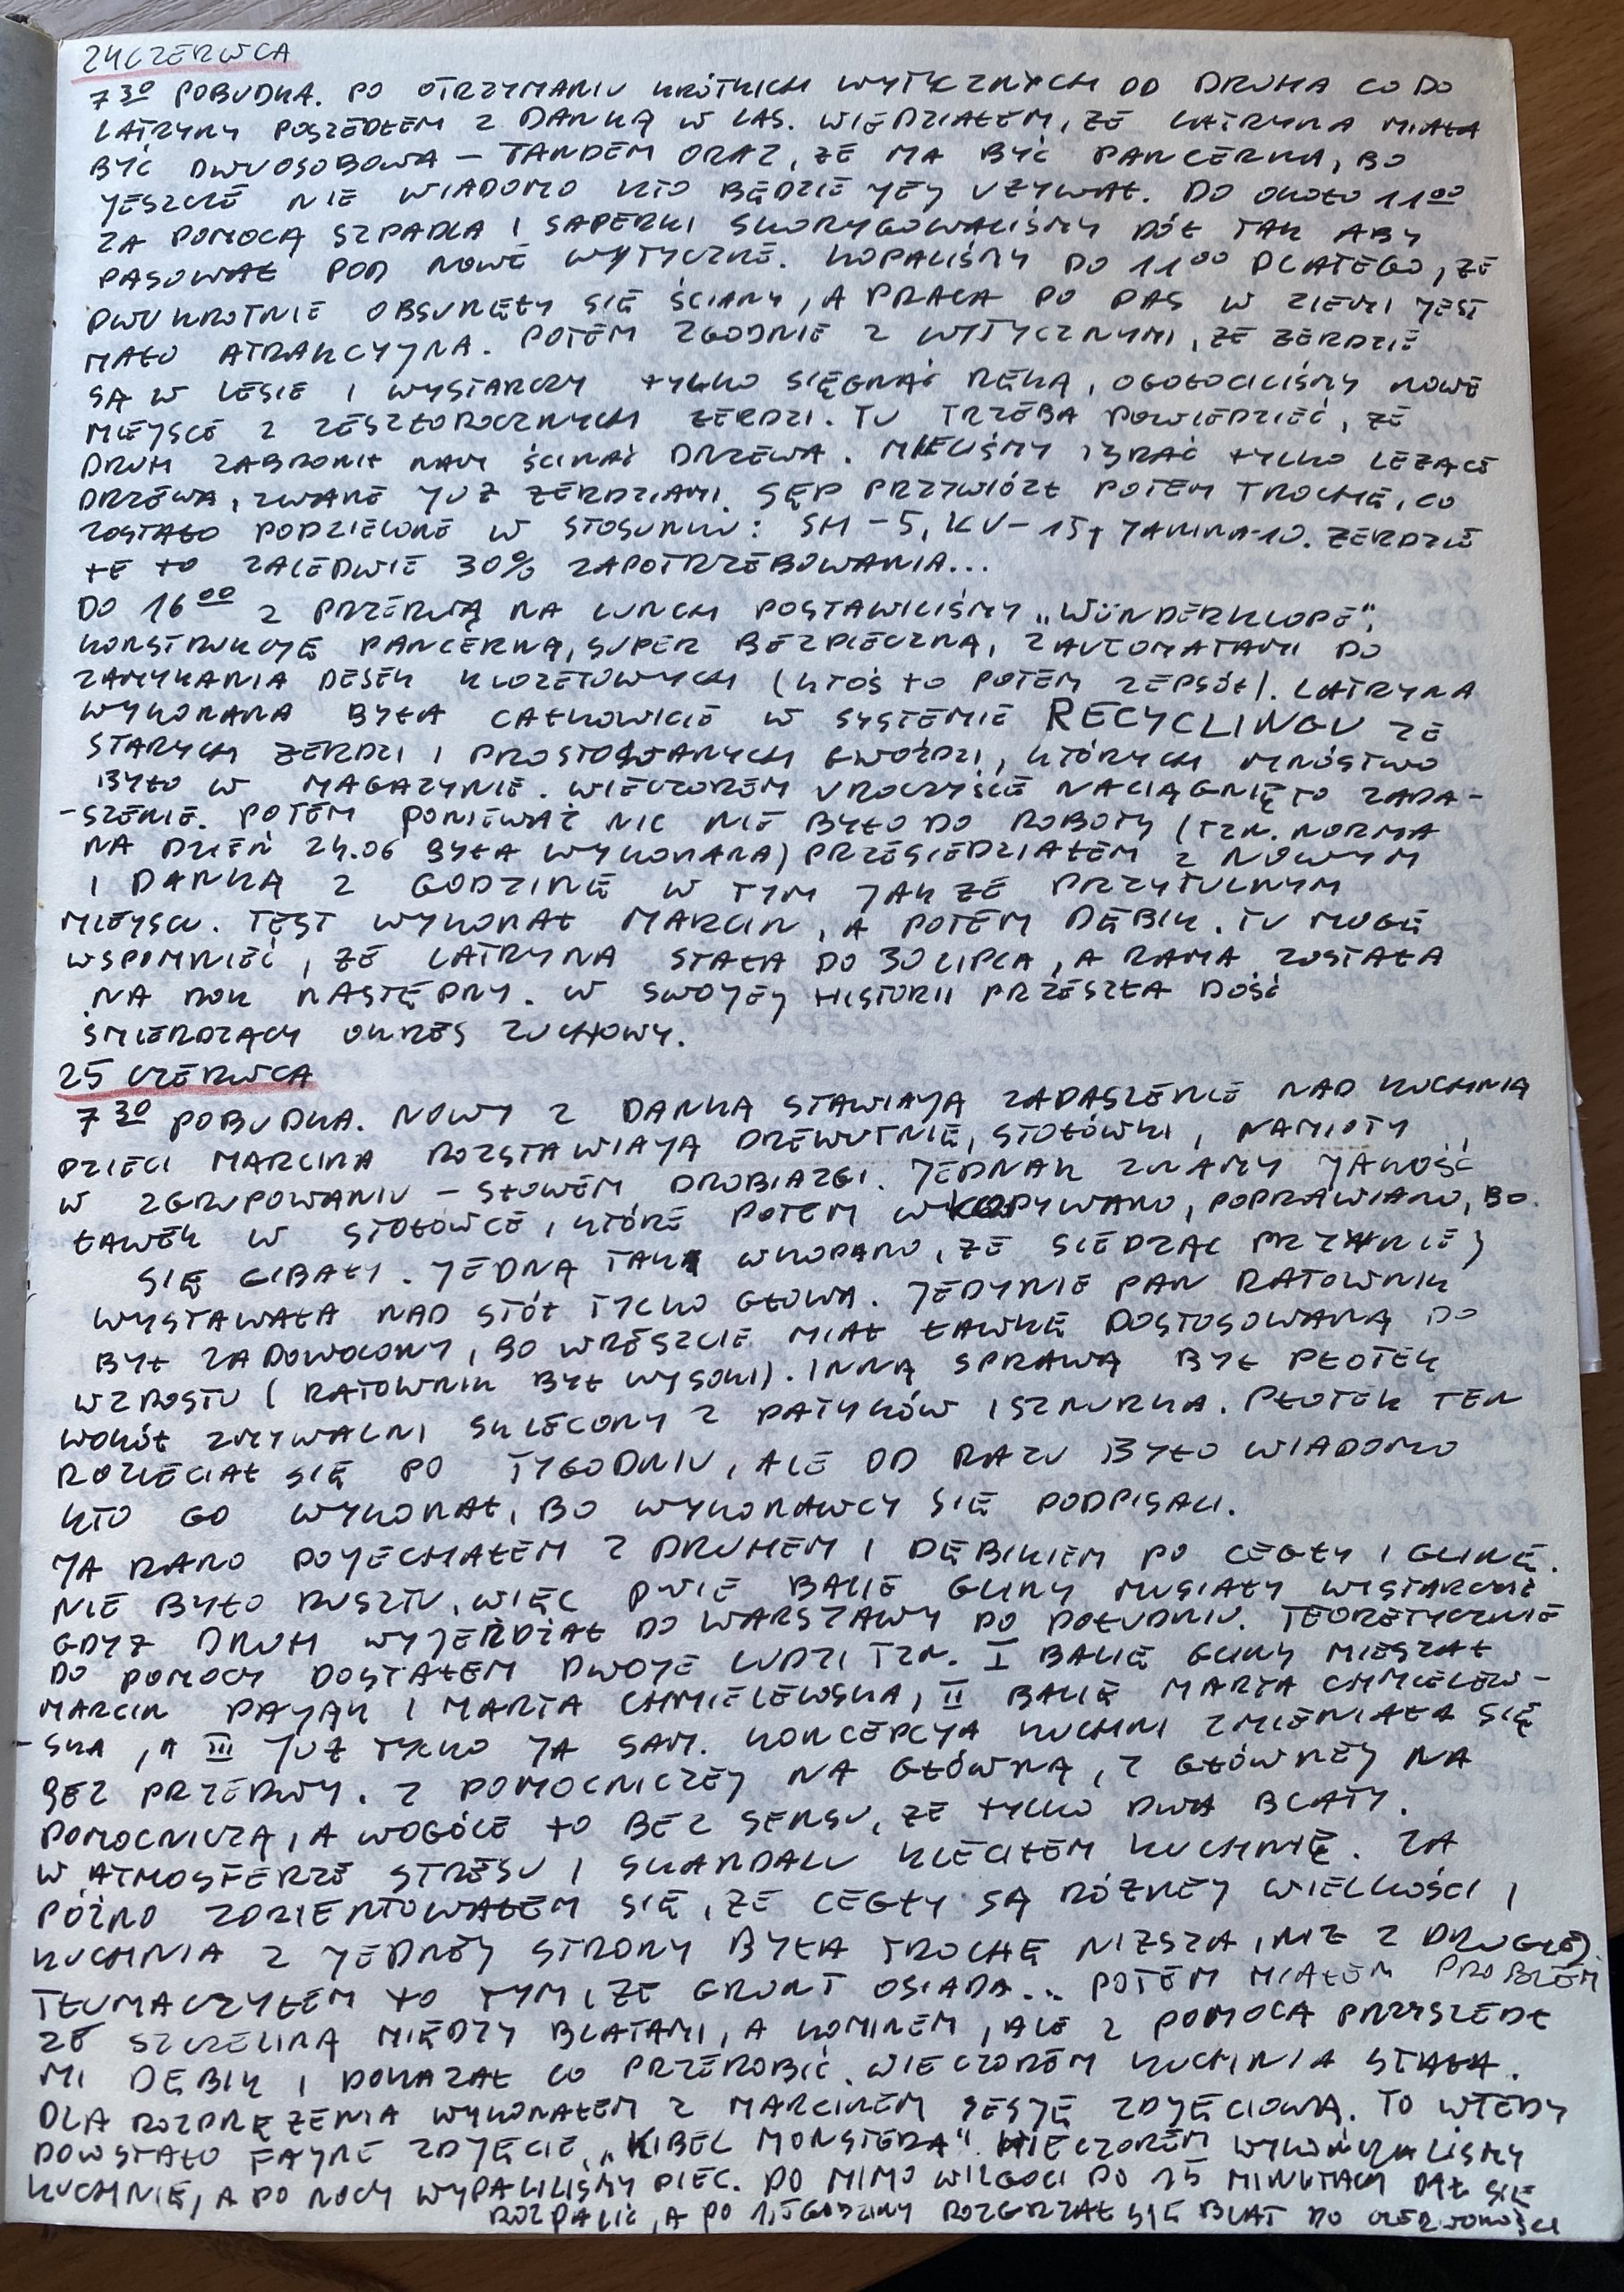 24 CZERWCA
7 30 POBUDKA. PO OTRZYMANIU KRÓTKICH WYTYCZNYCH OD DRUHA CO DO
LATRYNY POSZEDŁEM Z DANKĄ W LAS. WIEDZIAŁEM, ŻE LATRYNA MIAŁA
BYĆ DWUOSOBOWA – TANDEM ORAZ, ŻE MA BYĆ PANCERNA, BO
JESZCZE NIE WIADOMO KTO BĘDZIE JEJ UŻYWAŁ. DO OKOŁO 11 00
ZA POMOCĄ SZPADLA I SAPERKI SKORYGOWALIŚMY DÓŁ TAK ABY
PASOWAŁ POD NOWE WYTYCZNE. KOPALIŚMY DO 11 00 DLATEGO, ŻE
DWUKROTNIE OBSUNĘŁY SIĘ ŚCIANY, A PRACA PO PAS W ZIEMI JEST
MAŁO ATRAKCYJNA. POTEM ZGODNIE Z WYTYCZNYMI, ŻE ŻERDZIE
SĄ W LESIE I WYSTARCZY TYLKO SIĘGNĄĆ RĘKĄ, OGOŁOCILIŚMY NOWE
MIEJSCE Z ZESZŁOROCZNYCH ŻERDZI. TU TRZEBA POWIEDZIEĆ, ŻE
DRUH ZABRONIŁ NAM ŚCINAĆ DRZEWA. MIELIŚMY BRAĆ TYLKO LEŻĄCE
DRZEWA, ZWANE JUŻ ŻERDZIAMI. SĘP PRZYWIÓZŁ POTEM TROCHĘ, CO
ZOSTAŁO PODZIELONE W STOSUNKU: SH – 5, KU – 15, JANINA-10. ŻERDZIE
TE TO ZALEDWIE 30% ZAPOTRZEBOWANIA...
DO 16 00 Z PRZERWĄ NA LUNCH POSTAWILIŚMY „WÜNDERKLOPE",
KONSTRUKCJĘ PANCERNĄ, SUPER BEZPIECZNĄ, Z AUTOMATAMI DO
ZAMYKANIA DESEK KLOZETOWYCH (KTOŚ TO POTEM ZEPSÓŁ). LATRYNA
WYKONANA BYŁA CAŁKOWICIE W SYSTEMIE RECYCLINGU ZE
STARYCH ŻERDZI I PROSTOWANYCH GWOŹDZI, KTÓRYCH MNÓSTWO
BYŁO W MAGAZYNIE. WIECZOREM UROCZYŚCIE NACIĄGNIĘTO ZADA-
-SZENIE. POTEM PONIEWAŻ NIC NIE BYŁO DO ROBOTY (TZN. NORMA
NA DZIEŃ 24.06 BYŁA WYKONANA) PRZESIEDZIAŁEM Z NOWYM
I DANKĄ Z GODZINĘ W TYM JAKŻE PRZYTULNYM
MIEJSCU. TEST WYKONAŁ MARCIN, A POTEM DĘBIK. TU MOGĘ
WSPOMNIEĆ, ŻE LATRYNA STAŁA DO 30 LIPCA, A RAMA ZOSTAŁA
NA ROK NASTĘPNY. W SWOJEJ HISTORII PRZESZŁA DOŚĆ
ŚMIERDZĄCY OKRES ZUCHOWY.
25 CZERWCA
7 30 POBUDKA. NOWY Z DANKĄ STAWIAJĄ ZADASZENIE NAD KUCHNIĄ
DZIECI MARCINA ROZSTAWIAJĄ DREWUTNIĘ, STOŁÓWKI, NAMIOTY
W ZGRUPOWANIU – SŁOWEM DROBIAZGI. JEDNAK ZNAMY JAKOŚĆ
ŁAWEK W STOŁÓWCE, KTÓRE POTEM WKOPYWANO, POPRAWIANO, BO
SIĘ GIBAŁY. JEDNĄ TAK WKOPANO, ŻE SIEDZĄC PRZY NIEJ
WYSTAWAŁA NAD STÓŁ TYLKO GŁOWA. JEDYNIE PAN RATOWNIK
BYŁ ZADOWOLONY, BO WRESZCIE MIAŁ ŁAWKĘ DOSTOSOWANĄ DO
WZROSTU (RATOWNIK BYŁ WYSOKI). INNĄ SPRAWĄ BYŁ PŁOTEK
WOKÓŁ ZMYWALNI SKLECONY Z PATYKÓW I SZNURKA. PŁOTEK TEN
ROZLECIAŁ SIĘ PO TYGODNIU, ALE OD RAZU BYŁO WIADOMO
KTO GO WYKONAŁ, BO WYKONAWCY SIĘ PODPISALI.
JA RANO POJECHAŁEM Z DRUHEM I DĘBIKIEM PO CEGŁY I GLINĘ.
NIE BYŁO RUSZTU, WIĘC DWIE BALIE GLINY MUSIAŁY WYSTARCZYĆ
GDYŻ DRUH WYJEŻDŻAŁ DO WARSZAWY PO POŁUDNIU. TEORETYCZNIE
DO POMOCY DOSTAŁEM DWOJE LUDZI TZN. I BALIĘ GLINY MIESZAŁ
MARCIN PAJĄK I MARTA CHMIELEWSKA, II BALIĘ MARTA CHMIELEW-
-SKA, A III JUŻ TYLKO JA SAM. KONCEPCJA KUCHNI ZMIENIAŁA SIĘ
BEZ PRZERWY. Z POMOCNICZEJ NA GŁÓWNĄ, Z GŁÓWNEJ NA
POMOCNICZĄ, A WOGÓLE TO BEZ SENSU, ŻE TYLKO DWA BLATY.
W ATMOSFERZE STRESU I SKANDALU KLECIŁEM KUCHNIĘ. ZA
PÓŹNO ZORIENTOWAŁEM SIĘ, ŻE CEGŁY SĄ RÓŻNEJ WIELKOŚCI I
KUCHNIA Z JEDNEJ STRONY BYŁA TROCHĘ NIŻSZA, NIŻ Z DRUGIEJ.
TŁUMACZYŁEM TO TYM, ŻE GRUNT OSIADA... POTEM MIAŁEM PROBLEM
ZE SZCZELINĄ MIĘDZY BLATAMI, A KOMINEM, ALE Z POMOCĄ PRZYSZEDŁ
MI DĘBIK I POKAZAŁ CO PRZEROBIĆ. WIECZOREM KUCHNIA STAŁA.
DLA ROZPRĘŻENIA WYKONAŁEM Z MARCINEM SESJĘ ZDJĘCIOWĄ. TO WTEDY
POWSTAŁO FAJNE ZDJĘCIE „KIBEL MONSTERA". WIECZOREM WYKOŃCZALIŚMY
KUCHNIĘ, A PO NOCY WYPALILIŚMY PIEC. PO MIMO WILGOCI PO 15 MINUTACH DAŁ SIĘ
ROZPALIĆ, A PO 1,5 GODZINY ROZGRZAŁ SIĘ BLAT DO CZERWONOŚCI